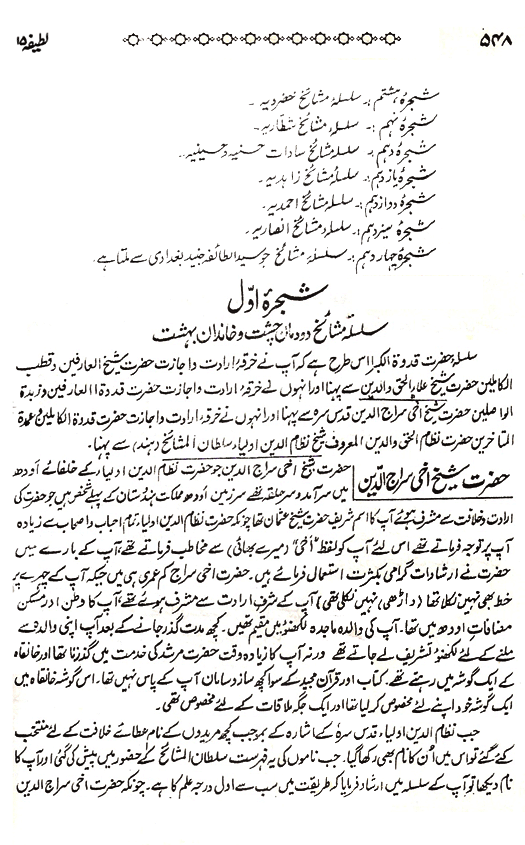 ۵۴۸ لطیفہ ۱۵
شجرۂ ہشتم :۔ سلسلۂ مشائخ خضرویہ ۔
شجرۂ نہم :۔ سلسلۂ مشائخ شطاریہ ۔
شجرۂ دہم :۔ سلسلۂ مشائخ سادات حسنیہ و حسینیہ ۔
شجرۂ یازدہم :۔ سلسلۂ مشائخ زاہدیہ ۔
شجرۂ دوازدہم :۔ سلسلۂ مشائخ احمدیہ ۔
شجرۂ سیزدہم :۔ سلسلۂ مشائخ انصاریہ ۔
شجرۂ چہاردہم :۔ سلسلۂ مشائخ جو سید الطائفہ جنید بغدادی سے ملتا ہے ۔
شجرۂ اوّل
سلسلۂ مشائخ دودمان چشت و خاندان بہشت
سلسلۂ حضرت قدوۃ الکبرا اس طرح ہے کہ آپ نے خرقۂ ارادت و اجازت حضرت شیخ العارفین و قطب
الکاملین حضرت شیخ علاء الحق والدین سے پہنا اور انہوں نے خرقۂ ارادت و اجازت حضرت قدوۃ العارفین و زبدۃ
الواصلین حضرت شیخ اخی سراج الدین قدس سرہ سے پہنا اور انہوں نے خرقۂ ارادت و اجازت حضرت قدوۃ الکاملین و عمدۃ
المتاخرین حضرت نظام الحق والدین المعروف شیخ نظام الدین اولیاء سلطان المشائخ (ہند) سے پہنا ۔
حضرت شیخ اخی سراج الدین حضرت شیخ اخی سراج الدین جو حضرت نظام الدین اولیاء کے خلفائے اودھ
میں سرآمد و سر حلقہ تھے سرزمین اودھ و مملکت ہندوستان کے پہلے شخص ہیں جو حضرت کی
ارادت و خلافت سے مشرف ہوئے آپ کا اسم شریف حضرت شیخ عثمان تھا چونکہ حضرت نظام الدین اولیاء تمام احباب و اصحاب سے زیادہ
آپ پر توجہ فرماتے تھے اس لئے آپ کو لفظ "اخی" (میرے بھائی) سے مخاطب فرماتے تھے، آپ کے بارے میں
حضرت نے ارشادات گرامی بکثرت استعمال فرمائے ہیں ۔ حضرت اخی سراج کم عمری ہی میں جبکہ آپ کے چہرے پر
خط بھی نہیں نکلا تھا (داڑھی نہیں نکلی تھی) آپ کے شرف ارادت سے مشرف ہوئے تھے، آپ کا وطن اور مسکن
مضافات اودھ میں تھا ۔ آپ کی والدہ ماجدہ لکھنؤ میں مقیم تھیں ۔ کچھ مدت گذر جانے کے بعد آپ اپنی والدہ سے
ملنے کے لئے لکھنؤ تشریف لے جاتے تھے ورنہ آپ کا زیادہ وقت حضرت مرشد کی خدمت میں گذرتا تھا اور خانقاہ
کے ایک گوشہ میں رہتے تھے ۔ کتاب اور قرآن مجید کے سوا کچھ ساز و سامان آپ کے پاس نہیں تھا ۔ اس گوشہ خانقاہ میں
ایک گوشہ خود اپنے لئے مخصوص کر لیا تھا اور ایک جگہ ملاقات کے لئے مخصوص تھی ۔
جب نظام الدین اولیاء قدس سرہٗ کے اشارہ کے بموجب کچھ مریدوں کے نام عطائے خلافت کے لئے منتخب
کئے گئے تو اس میں اُن کا نام بھی رکھا گیا ۔ جب ناموں کی یہ فہرست سلطان المشائخ کے حضور میں پیش کی گئی اور آپ کا
نام دیکھا تو آپ کے سلسلہ میں ارشاد فرمایا کہ طریقت میں سب سے اول درجہ علم کا ہے ۔ چونکہ حضرت اخی سراج الدین